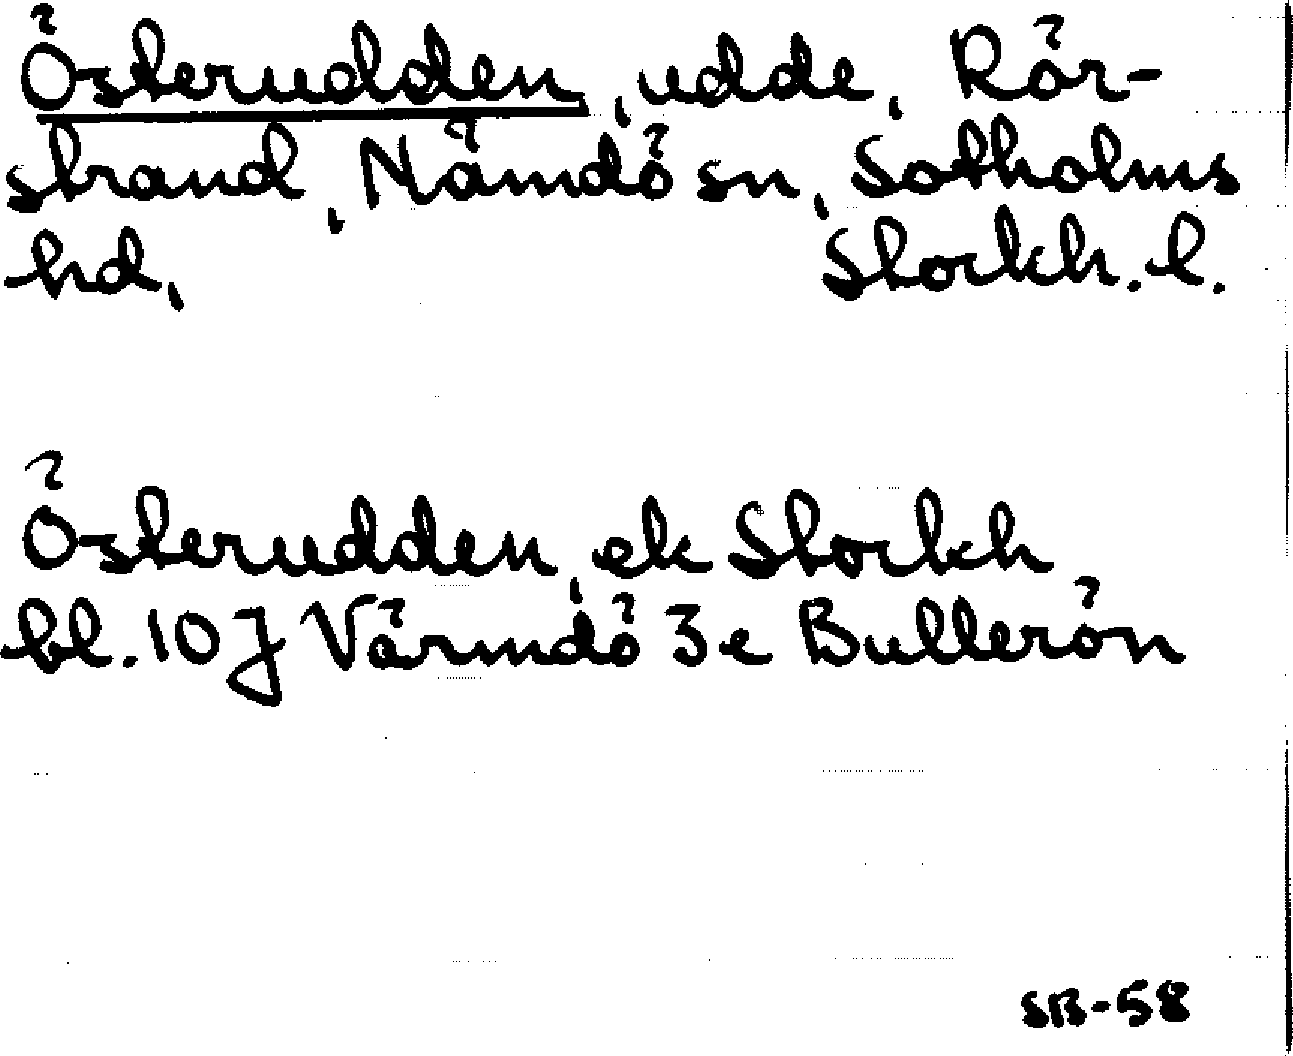 Österudden, udde, Rör-
strand, Nämdö sn, Sotholms
hd, Stockh. l.
Österudden, ek Stockh
bl. 10J Värmdö 3e Bullerön
SB-58